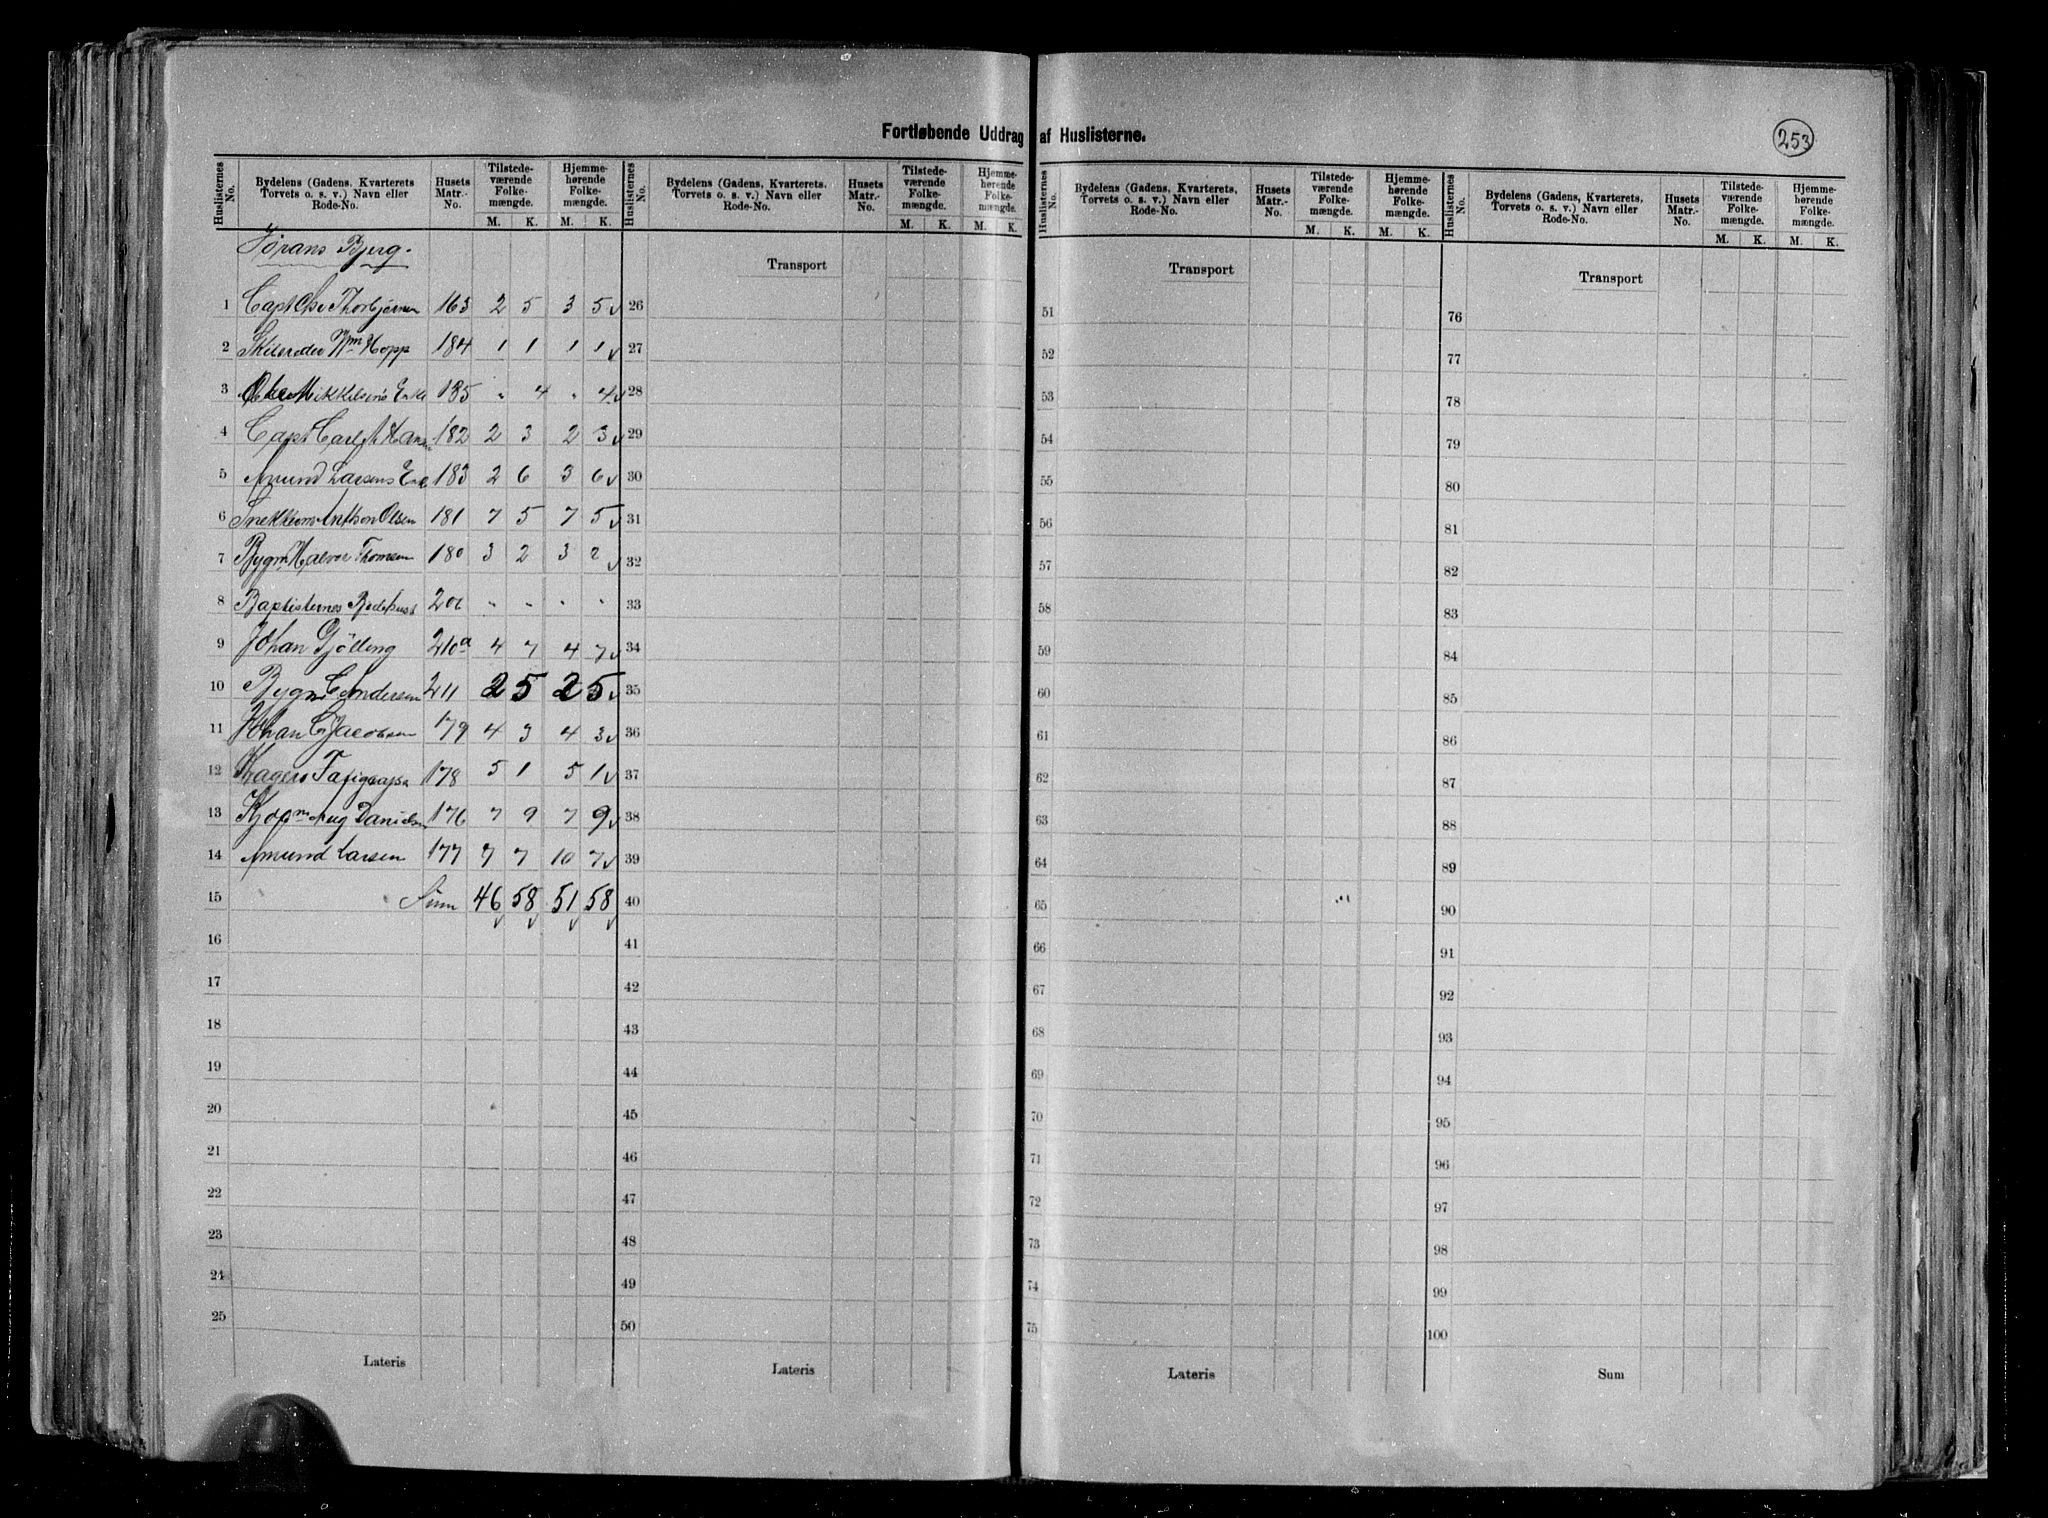 Fortløbende Uddrag af Huslisterne.
253
Huslisternes No.
Bydelens (Gadens, Kvarterets Torvets o. s. v.) Navn eller Rode-No.
Husets Matr.-No.
Tilstede-værende Folke-mængde.
Hjemme-hørende Folke-mængde.
M. K. M. K.
Huslisternes No.
Bydelens (Gadens, Kvarterets, Torvets o. s. v.) Navn eller Rode-No.
Husets Matr.-No.
Tilstede-værende Folke-mængde.
Hjemme-hørende Folke-mængde.
M. K. M. K.
Huslisternes No.
Bydelens (Gadens, Kvarterets, Torvets o. s. v.) Navn eller Rode-No.
Husets Matr.-No.
Tilstede-værende Folke-mængde.
Hjemme-hørende Folke-mængde.
M. K. M. K.
Huslisternes No.
Bydelens (Gadens, Kvarterets, Torvets o. s. v.) Navn eller Rode-No.
Husets Matr.-No.
Tilstede-værende Folke-mængde.
Hjemme-hørende Folke-mængde.
M. K. M. K.
Jørans Bjerg.
1 Capt Thorbjørnsen 163 2 5 3 5
2 Hopp 184 1 1 1 1
3 Mikkelsens Enke 185 " 4 " 4
4 Capt Carl Hansen 182 2 3 2 3
5 Amund Larsens Enke 183 2 6 3 6
6 Anthon Olsen 181 7 5 7 5
7 Bygm Halvor Thomsen 180 3 2 3 2
8 Baptisternes Bedehus " " " "
9 Johan Gjølling 210a 4 7 4 7
10 Bygm C Andersen 211 2 5 2 5
11 Johan C Jacobsen 179 4 3 4 3
12 178 5 1 5 1
13 Kjøpm Aug Danielsen 176 7 9 7 9
14 Amund Larsen 177 7 7 10 7
15 Sum 46 58 51 58
16
17
18
19
20
21
22
23
24
25
Lateris
Transport
26
27
28
29
30
31
32
33
34
35
36
37
38
39
40
41
42
43
44
45
46
47
48
49
50
Lateris
Transport
51
52
53
54
55
56
57
58
59
60
61
62
63
64
65
66
67
68
69
70
71
72
73
74
75
Lateris
Transport
76
77
78
79
80
81
82
83
84
85
86
87
88
89
90
91
92
93
94
95
96
97
98
99
100
Sum